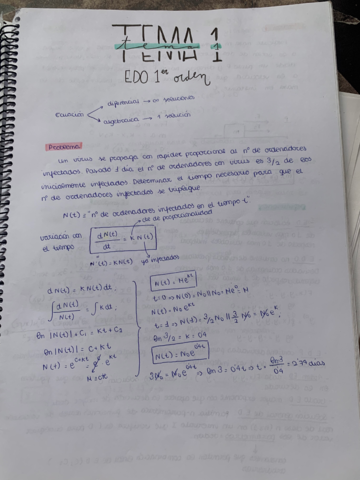 TEMA 1
tema 1
EDO 1er orden
Ecuación
diferencial → ∞ soluciones
algebraica → 1 solución
Problema
Un virus se propaga con rapidez proporcional al nº de ordenadores
infectados. Pasado 1 día el nº de ordenadores con virus es 3/2 de los
inicialmente infectados. Determinar el tiempo necesario para que el
nº de ordenadores infectados se triplique
N(t) = "nº de ordenadores infectados en el tiempo t"
cte de proporcionalidad
variación con el tiempo
dN(t)/dt = K N(t)
N'(t) = KN(t)
ya infectados
dN(t) = KN(t)dt
∫ dN(t)/N(t) = ∫ Kdt
ln |N(t)| + C₁ = Kt + C₂
ln |N(t)| = C + Kt
N(t) = e^(C+Kt) = e^C · e^(Kt)
N(t) = Me^(Kt)
t = 0 → N(0) = N₀
N(t) = N₀e^(Kt)
ln 3/2 = K = 0'4
N(t) = N₀e^(0'4t)
3N₀ = N₀e^(0'4t) → ln 3 = 0'4t → t = ln 3/0'4 = 2'74 días